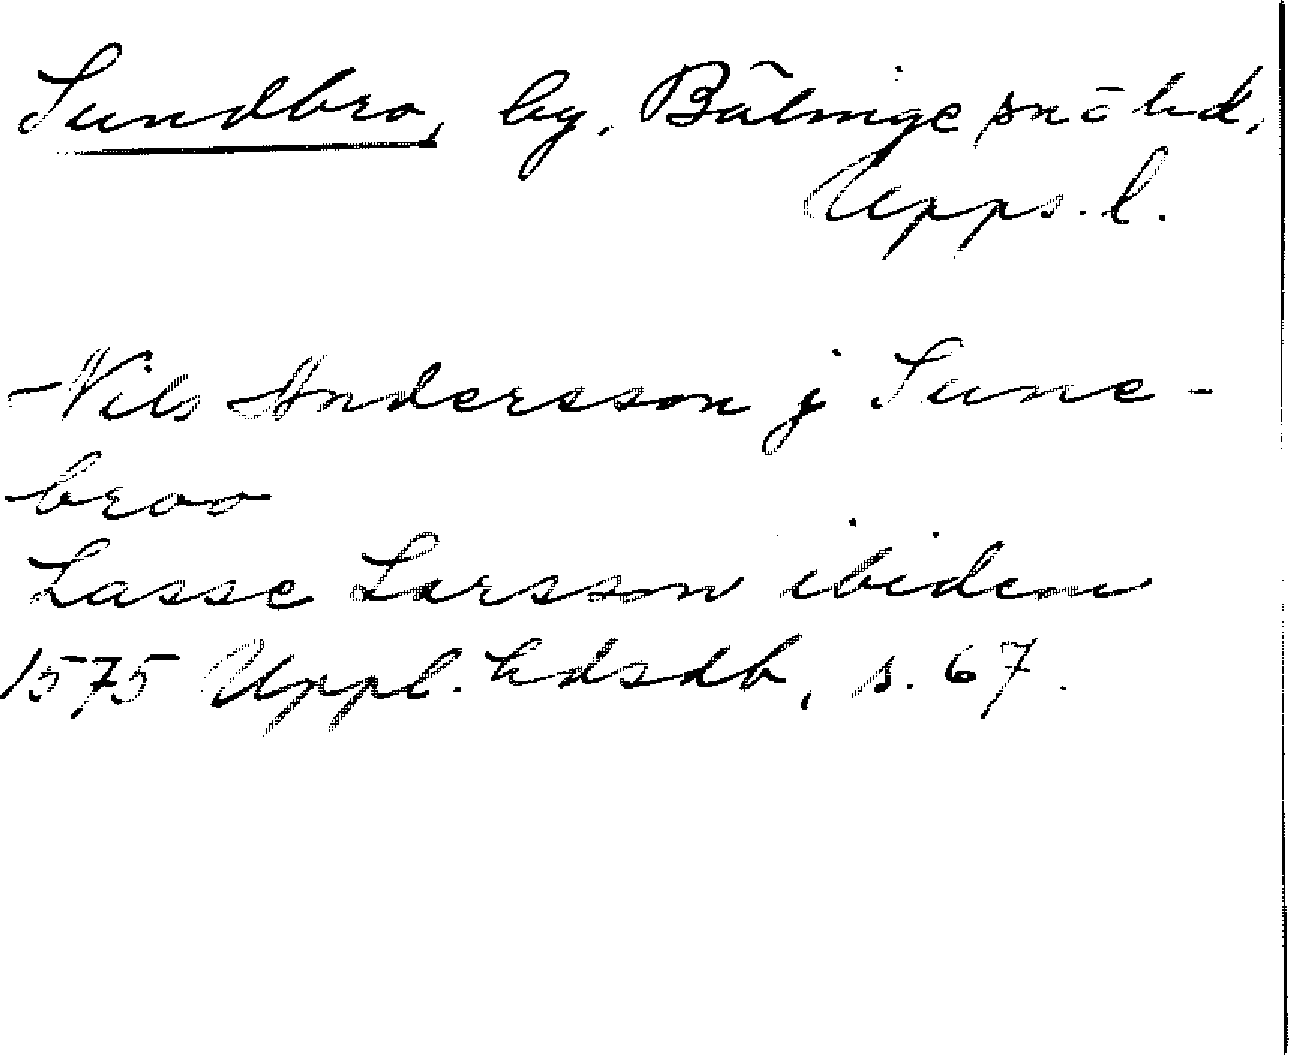 Sundbro, by, Bälinge sn o hd,
Upps. l.
Nils Andersson j Sune-
broo
Lasse Larsson ibidem
1575 Uppl. hdsdb, s. 67.